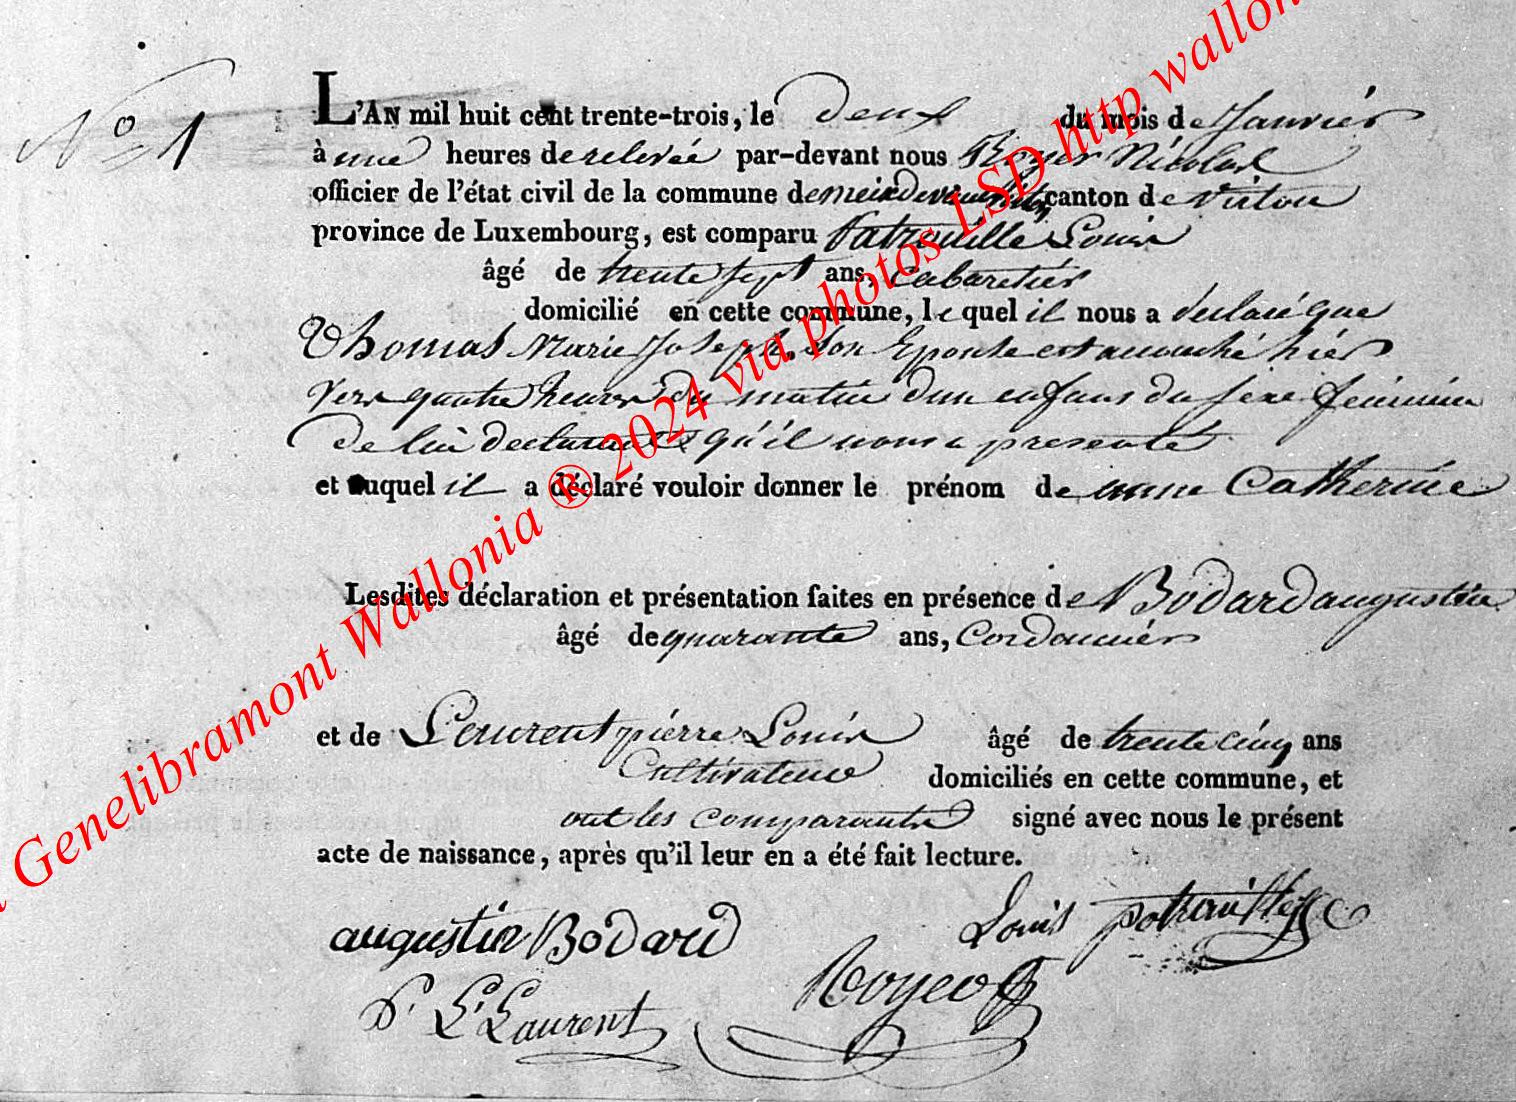 N° 1
L'AN mil huit cent trente-trois, le deux du mois de Janvier
à une heures de relevée par-devant nous Royer Nicolas
officier de l'état civil de la commune de meix devant virton canton de virton
province de Luxembourg, est comparu Patrouille Louis
âgé de trente sept ans, cabaretier
domicilié en cette commune, le quel il nous a declaré que
Thomas Marie Joseph. Son Epouse est accouché hier
vers quatre heures du matin dun enfans du sexe féminin
de lui declarant & qu'il nous a presenté
et auquel il a déclaré vouloir donner le prénom de anne Catherine
Lesdites déclaration et présentation faites en présence de Bodard augustin
âgé de quarante ans, Cordonnier
et de Leurent pierre Louis âgé de trente cinq ans
Cultivateur domiciliés en cette commune, et
ont les comparants signé avec nous le présent
acte de naissance, après qu'il leur en a été fait lecture.
augustin Bodard Louis potrouille
P. L. Laurent Royer
Genelibramont Wallonia ® 2024 via photos LSD http wallon